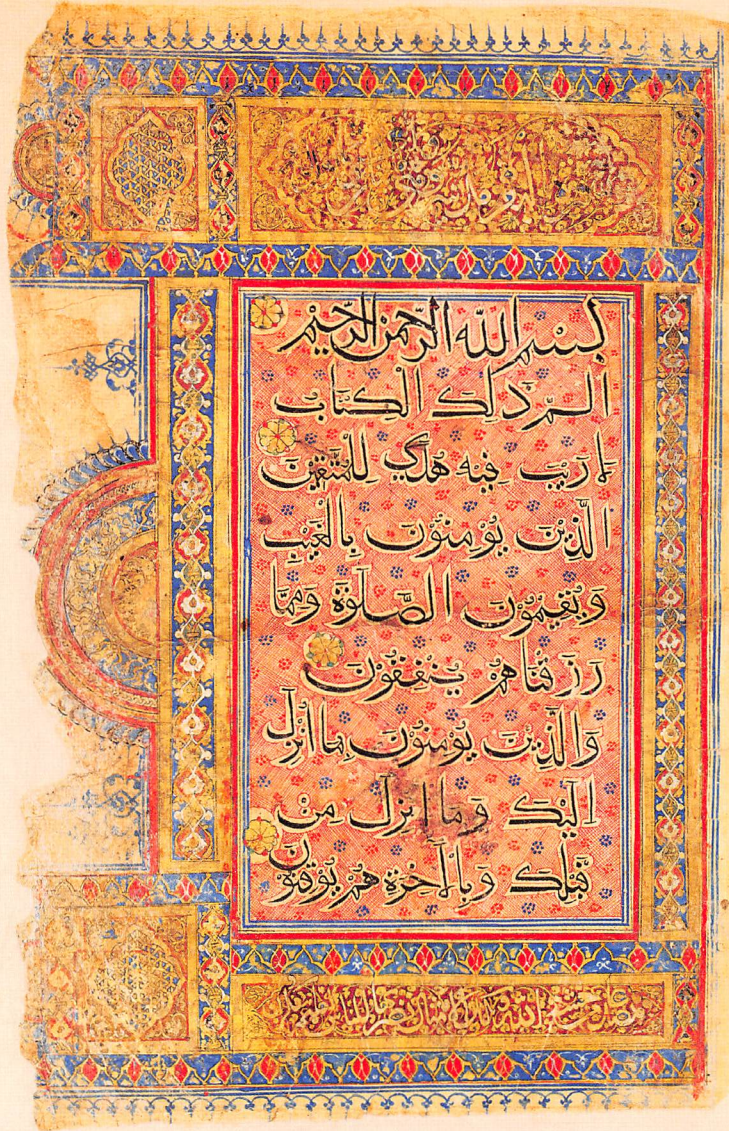 بِسْمِ اللّٰهِ الرَّحْمٰنِ الرَّحِيْمِ
الٓمّٓ ذٰلِكَ الْكِتَابُ
لارَيْبَ فِيْهِ هُدًي لِلْمُتَّقِيْنَ
الَّذِيْنَ يُؤْمِنُوْنَ بِالْغَيْبِ
وَيُقِيْمُوْنَ الصَّلٰوةَ وَمِمَّا
رَزَقْنَاهُمْ يُنْفِقُوْنَ
وَالَّذِيْنَ يُؤْمِنُوْنَ بِمَا اُنْزِلَ
اِلَيْكَ وَمَا اُنْزِلَ مِنْ
قَبْلِكَ وَبِالْاٰخِرَةِ هُمْ يُوْقِنُوْنَ